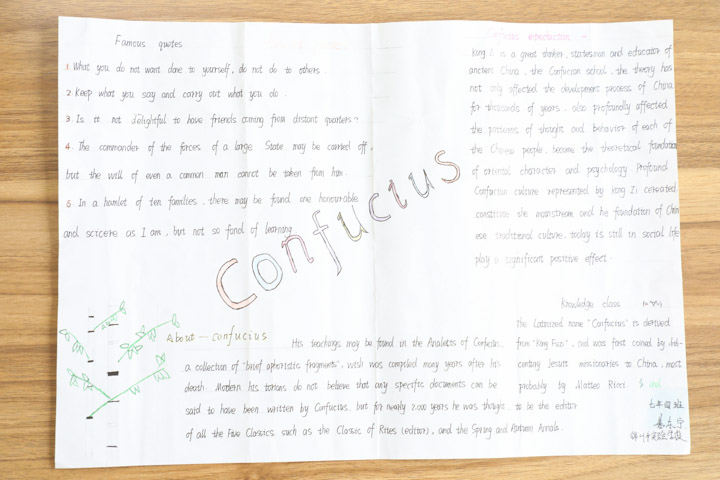 Famous quotes
1. What you do not want done to yourself, do not do to others.
2. Keep what you say and carry out what you do.
3. Is it not delightful to have friends coming from distant quarters?
4. The commander of the forces of a large State may be carried off,
but the will of even a common man cannot be taken from him.
5. In a hamlet of ten families, there may be found one honourable
and sincere as I am, but not so fond of learning
Confucius
introduction
Kong Zi is a great thinker, statesman and educator of
ancient China, the Confucian school, the theory has
not only affected the development process of China
for thousands of years, also profoundly affected
the patterns of thought and behavior of each of
the Chinese people, become the theoretical foundation
of oriental character and psychology Profound
Confucian culture represented by kong Zi cereated
constitute the mainstream and he foundation of Chin
ese traditional culture, today is still in social life
play a significant positive effect.
About — confucius
His teachings may be found in the Analects of Confucius,
a collection of "brief aphoristic fragments", wish was compiled many years after his
death. Modern his torians do not believe that any specific documents can be
said to have been written by Confucius, but for nearly 2,000 years he was thought to be the editor
of all the Five Classics such as the Classic of Rites (editor), and the Spring and Autumn Annals.
Knowledge class
The Latinized name "Confucius" is derived
from "Kong Fuzi", and was first coined by
Jesuit missionaries to China, most
probably by Matteo Ricci.
七年四班